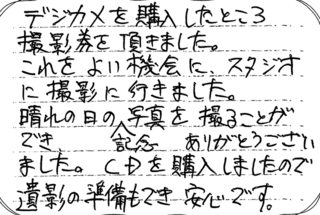 デジカメを購入したところ
撮影券を頂きました。
これをよい機会に、スタジオ
に撮影に行きました。
晴れの日の写真を撮ることが
でき、記念 ありがとうござい
ました。CDを購入しましたので
遺影の準備もでき安心です。